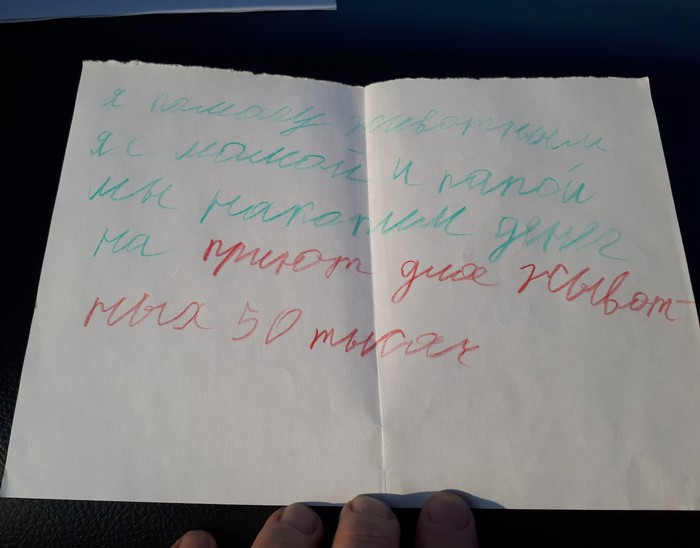 я помагу животным
я с мамой и папой
мы накопим денег
на приют для жывот-
ных 50 тысяч